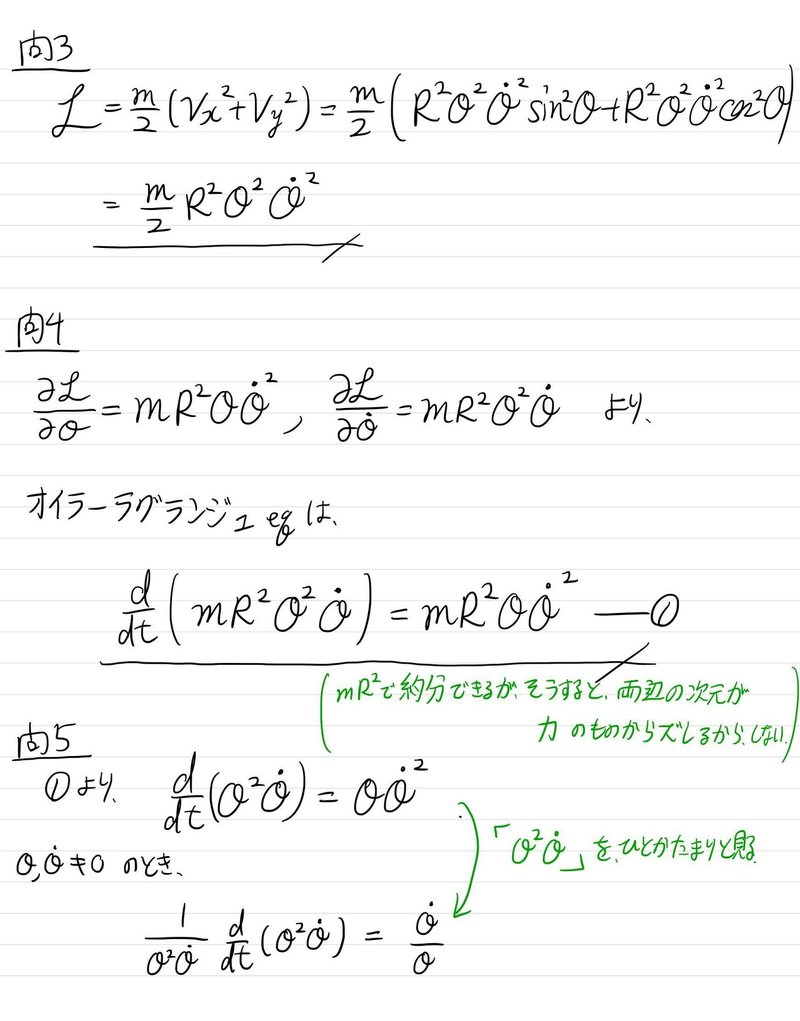 問3
ℒ = m/2 (Vx² + Vy²) = m/2 (R²θ²θ̇² sin²θ + R²θ²θ̇² cos²θ)
= m/2 R²θ²θ̇²
問4
∂ℒ/∂θ = mR²θθ̇² , ∂ℒ/∂θ̇ = mR²θ²θ̇ より、
オイラーラグランジュ eq は、
d/dt (mR²θ²θ̇) = mR²θθ̇² ― ①
(mR²で約分できるが、そうすると、両辺の次元が
力 のものからズレるから、しない)
問5
①より、 d/dt (θ²θ̇) = θθ̇²
θ, θ̇ ≠ 0 のとき、
「θ²θ̇」を、ひとかたまりと見る
1/(θ²θ̇) d/dt (θ²θ̇) = θ̇/θ